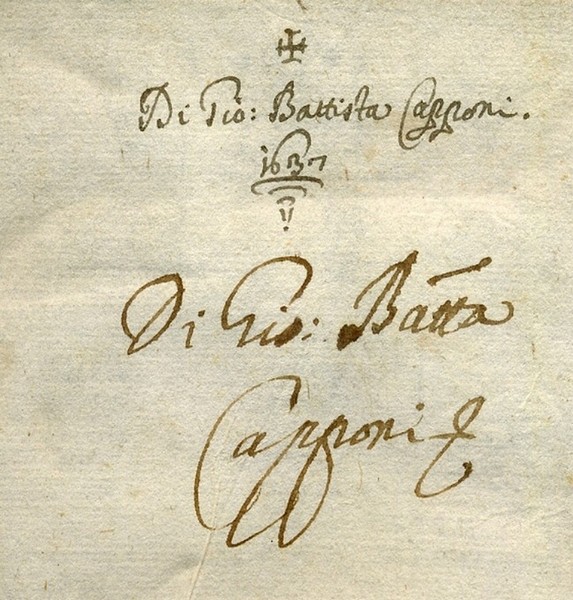 Di Gio: Battista Capponi.
1637
Di Gio: Batta
Capponi